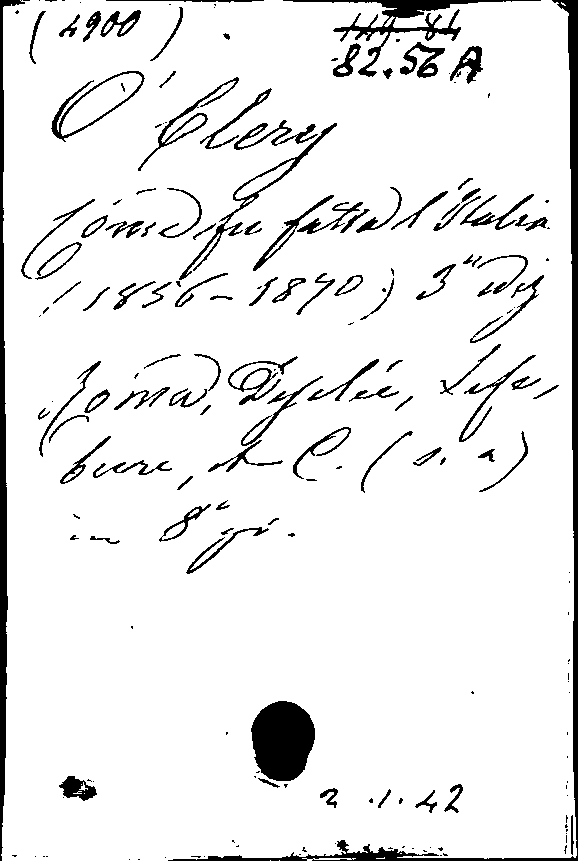 (4900)
149.84
82.56 A
O' Clery
Come fu fatta l'Italia
(1856-1870) 3ª ediz
Roma, Desclée, Lefe,
bure, et C. (s. a)
in 8º gr.
2.1.42